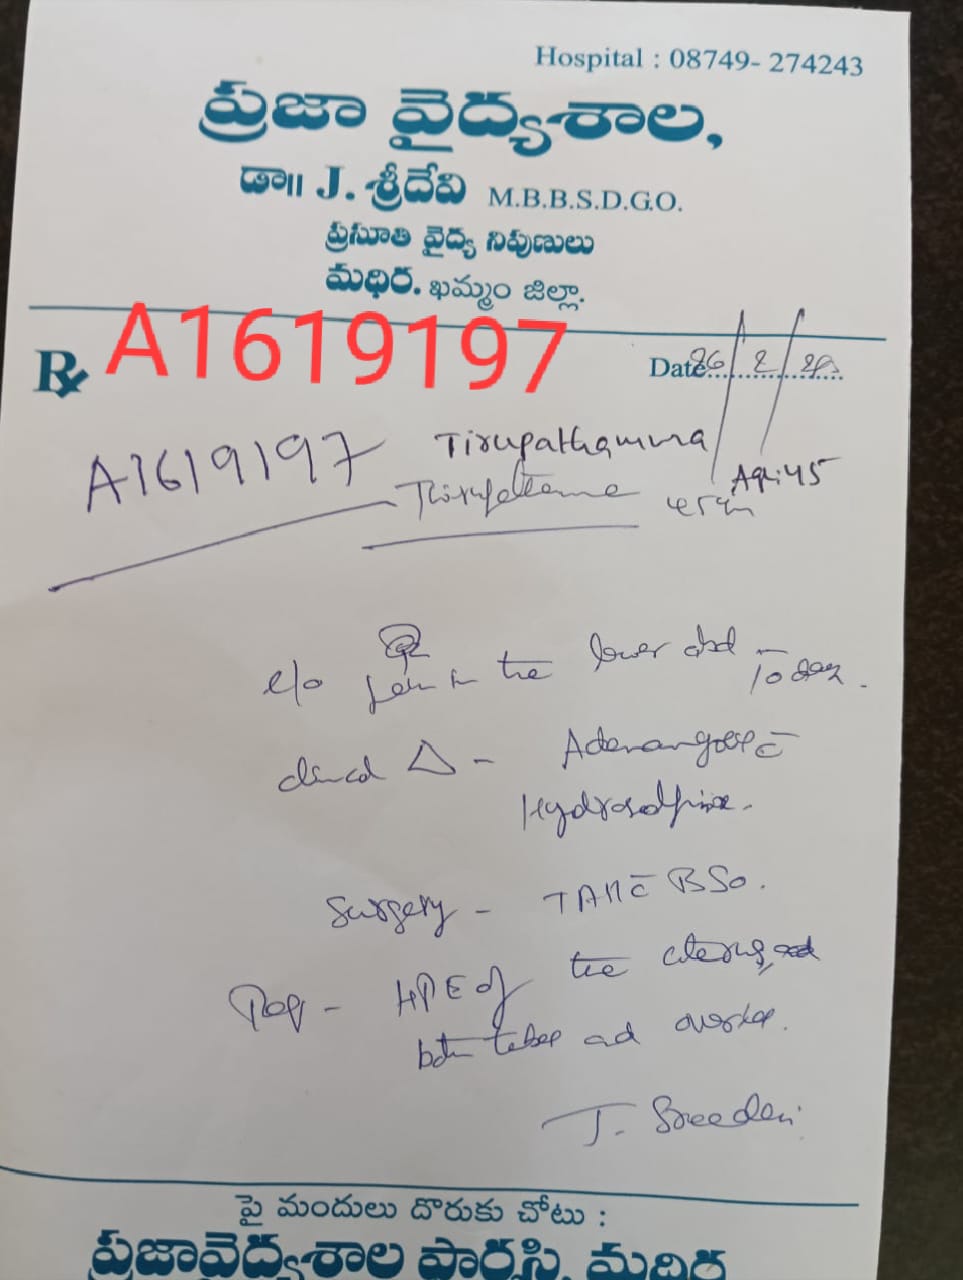 Hospital : 08749- 274243
ప్రజా వైద్యశాల,
డా॥ J. శ్రీదేవి M.B.B.S.D.G.O.
ప్రసూతి వైద్య నిపుణులు
మధిర. ఖమ్మం జిల్లా.
A1619197
Rx Date 26/2/
A1619197 Tirupathamma
Age:45
45
c/o pain in the lower abd
clinical Δ -
Surgery - TAH c̄ BSO.
Req - HPE of the uterus,
both tubes and ovaries.
J. Sreedevi
పై మందులు దొరుకు చోటు :
ప్రజావైద్యశాల ఫార్మసి, మధిర